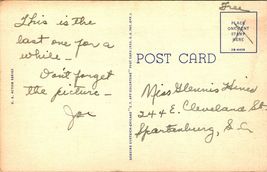 This is the
last one for a
while —
Don't forget
the picture —
Joe
Free
PLACE
ONE CENT
STAMP
HERE
POST CARD
Miss Glennis Hines
244 E. Cleveland St
Spartanburg, S.C.